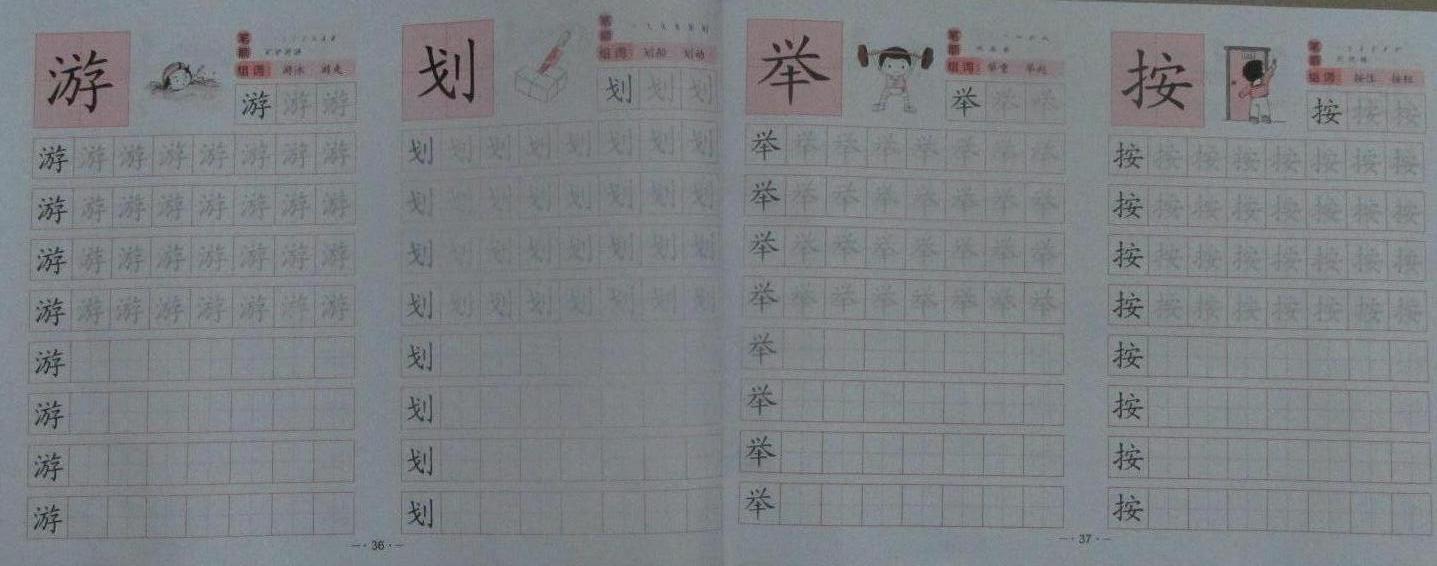 游
笔顺
组词 游泳 游走
游 游 游
游 游 游 游 游 游 游 游
游 游 游 游 游 游 游 游
游 游 游 游 游 游 游 游
游 游 游 游 游 游 游 游
游
游
游
游
划
笔顺
组词 划船 划动
划 划 划
划 划 划 划 划 划 划 划
划 划 划 划 划 划 划 划
划 划 划 划 划 划 划 划
划 划 划 划 划 划 划 划
划
划
划
划
36
举
笔顺
组词 举重 举起
举 举 举
举 举 举 举 举 举 举 举
举 举 举 举 举 举 举 举
举 举 举 举 举 举 举 举
举 举 举 举 举 举 举 举
举
举
举
举
按
笔顺
组词 按住 按钮
按 按 按
按 按 按 按 按 按 按 按
按 按 按 按 按 按 按 按
按 按 按 按 按 按 按 按
按 按 按 按 按 按 按 按
按
按
按
按
37